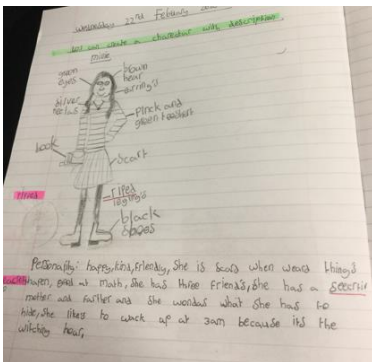 Wednesday 22nd February
create a character with description
green eyes
brown hear
earring's
silver neclas
Pinck and green t-eshert
book
Scart
riped leging's
black
Personality: happy, kind, friendly, she is scard when weard things
hapen, good at math, she has three friends, she has a
mother and farther and she wondas what she has to
hide, she likes to wack up at 3am because its the
witching hour,